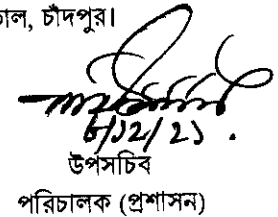 চাঁদপুর।
৮/১২/২১.
উপসচিব
পরিচালক (প্রশাসন)